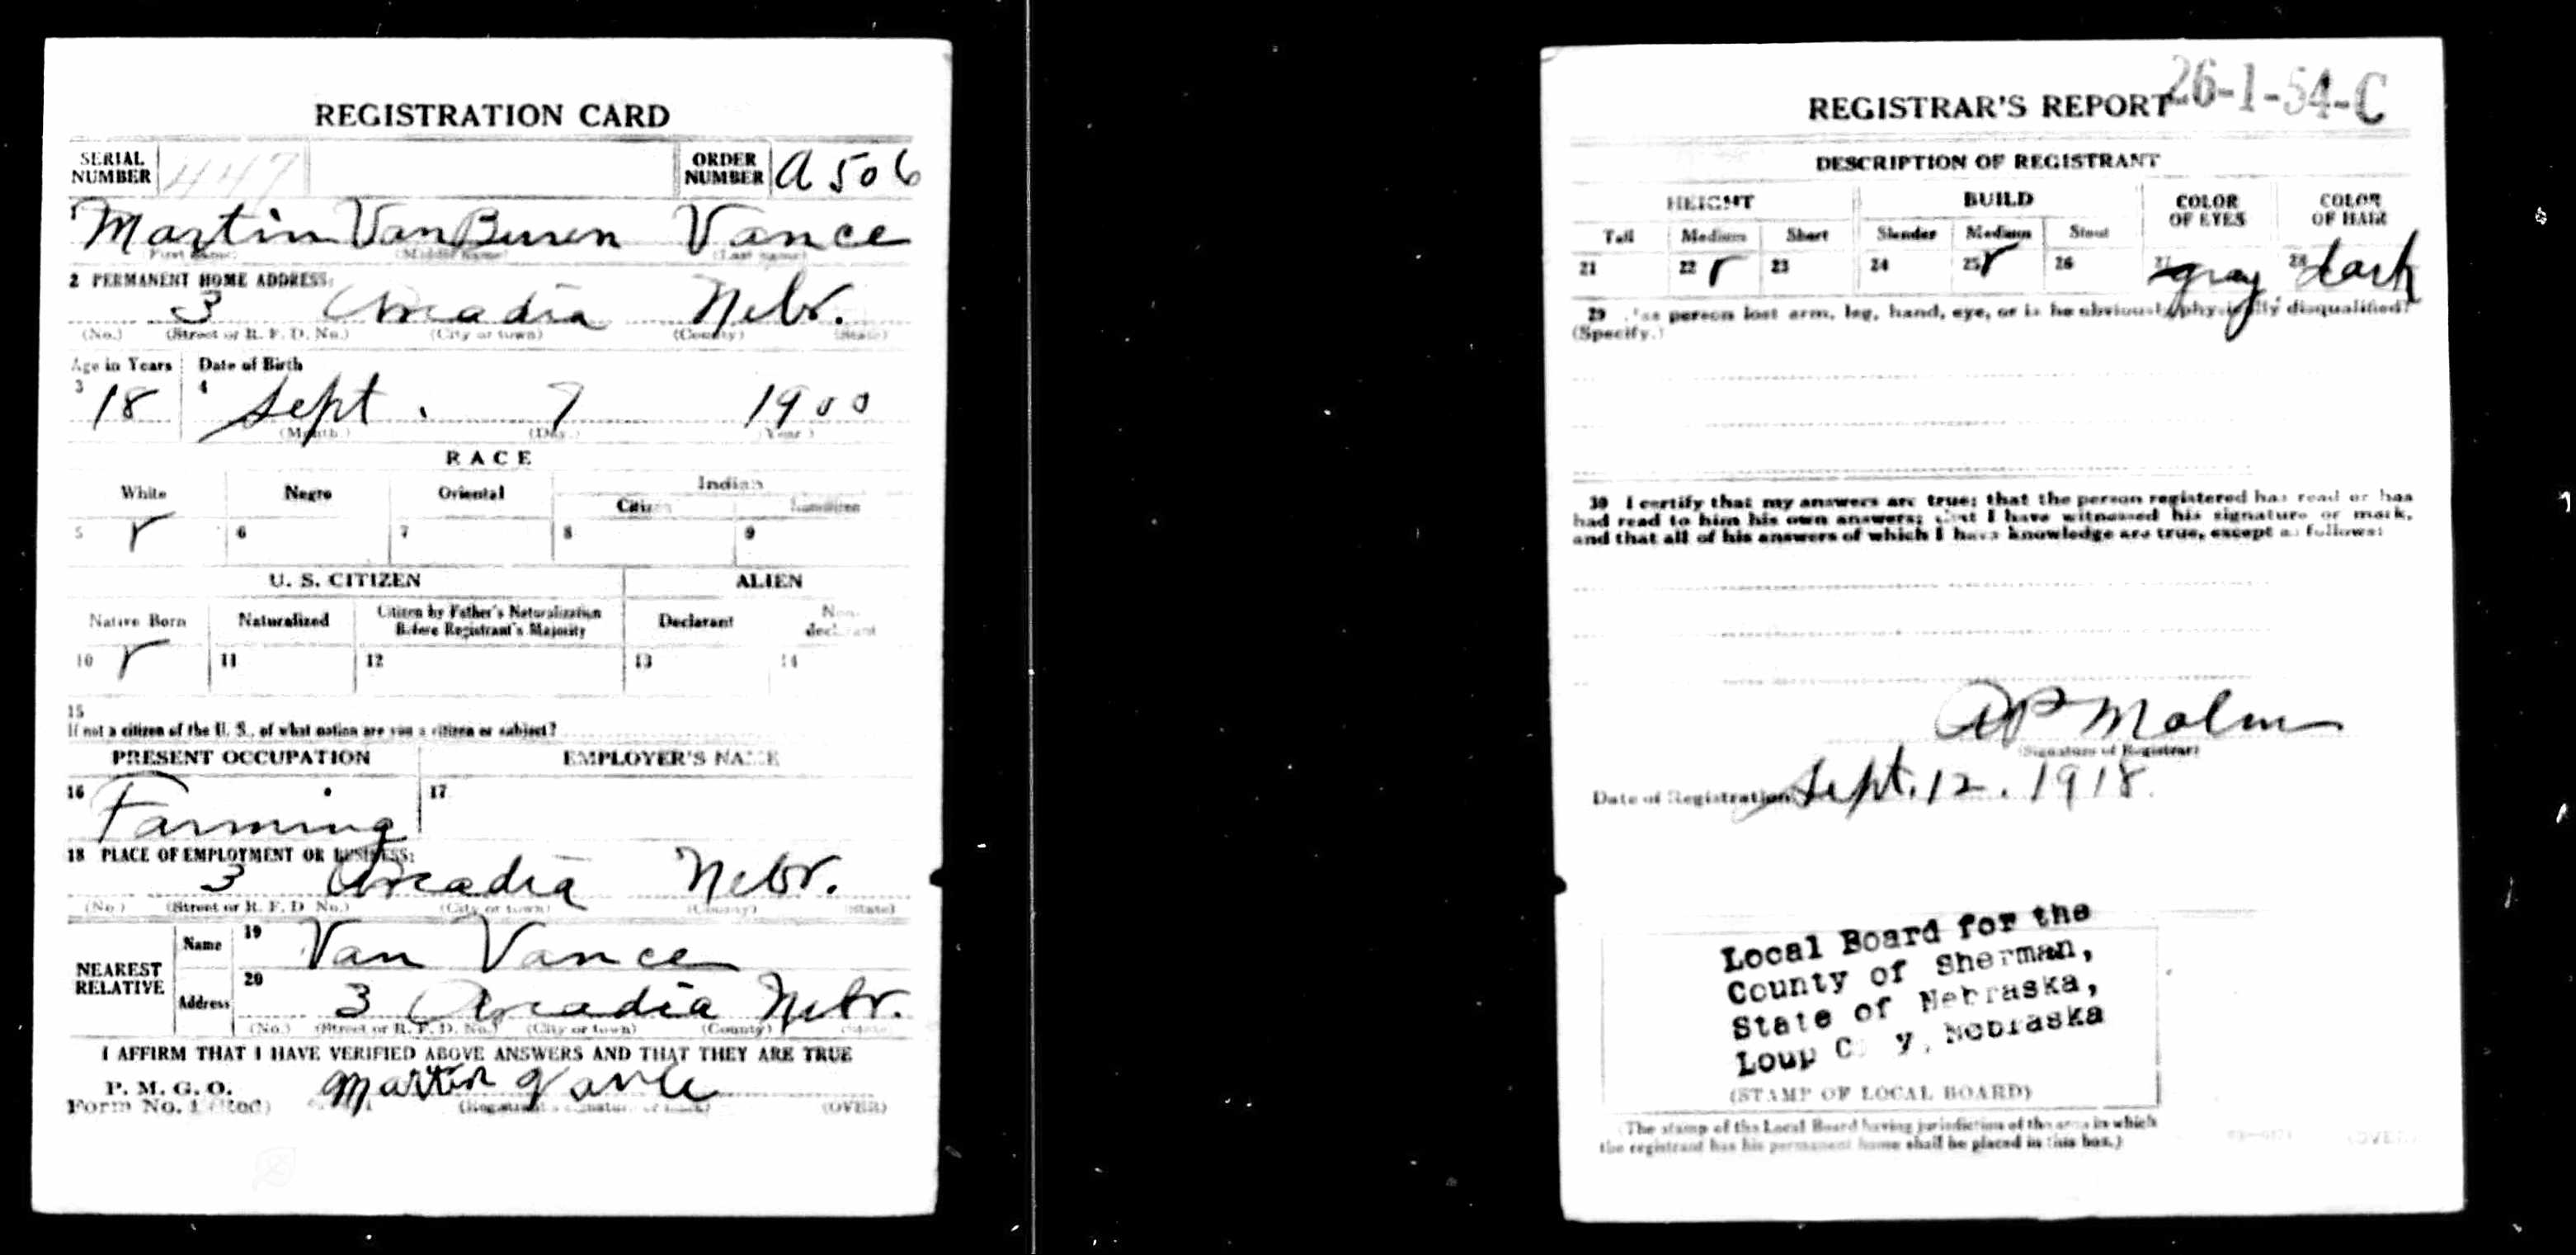 REGISTRATION CARD
SERIAL NUMBER 447 ORDER NUMBER A 506
1 Martin VanBuren Vance
(First name) (Middle name) (Last name)
2 PERMANENT HOME ADDRESS:
3 Arcadia Nebr.
(No.) (Street or R. F. D. No.) (City or town) (County) (State)
Age in Years Date of Birth
3 18 4 Sept. 7 1900
(Month.) (Day.) (Year.)
RACE
White Negro Oriental Indian
Citizen
5 6 7 8 9
U. S. CITIZEN ALIEN
Native Born Naturalized Citizen by Father's Naturalization Before Registrant's Majority Declarant Non-declarant
10 11 12 13 14
15
If not a citizen of the U. S., of what nation are you a citizen or subject?
PRESENT OCCUPATION EMPLOYER'S NAME
16 Farming 17
18 PLACE OF EMPLOYMENT OR BUSINESS:
3 Arcadia Nebr.
(No.) (Street or R. F. D. No.) (City or town) (County) (State)
NEAREST RELATIVE
Name 19 Van Vance
Address 20 3 Arcadia Nebr.
(No.) (Street or R. F. D. No.) (City or town) (County) (State)
I AFFIRM THAT I HAVE VERIFIED ABOVE ANSWERS AND THAT THEY ARE TRUE
P. M. G. O.
Form No. 1 (Red) Martin Vance
(Registrant's signature or mark) (OVER)
26-1-54-C
REGISTRAR'S REPORT
DESCRIPTION OF REGISTRANT
HEIGHT BUILD COLOR OF EYES COLOR OF HAIR
Tall Medium Short Slender Medium Stout
21 22 23 24 25 26 27 gray 28 dark
29 Has person lost arm, leg, hand, eye, or is he obviously physically disqualified?
(Specify.)
30 I certify that my answers are true; that the person registered has read or has
had read to him his own answers; that I have witnessed his signature or mark,
and that all of his answers of which I have knowledge are true, except as follows:
AP Malm
(Signature of Registrar)
Date of Registration Sept. 12. 1918.
Local Board for the
County of Sherman,
State of Nebraska,
Loup C y, Nebraska
(STAMP OF LOCAL BOARD)
(The stamp of the Local Board having jurisdiction of the area in which
the registrant has his permanent home shall be placed in this box.)
(OVER)